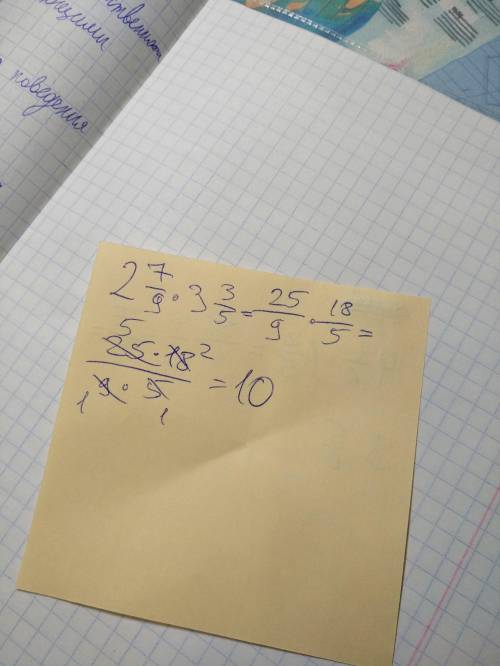 поведения
2 7/9 · 3 3/5 = 25/9 · 18/5 =
5 25 · 18 2 / 1 9 · 5 1 = 10